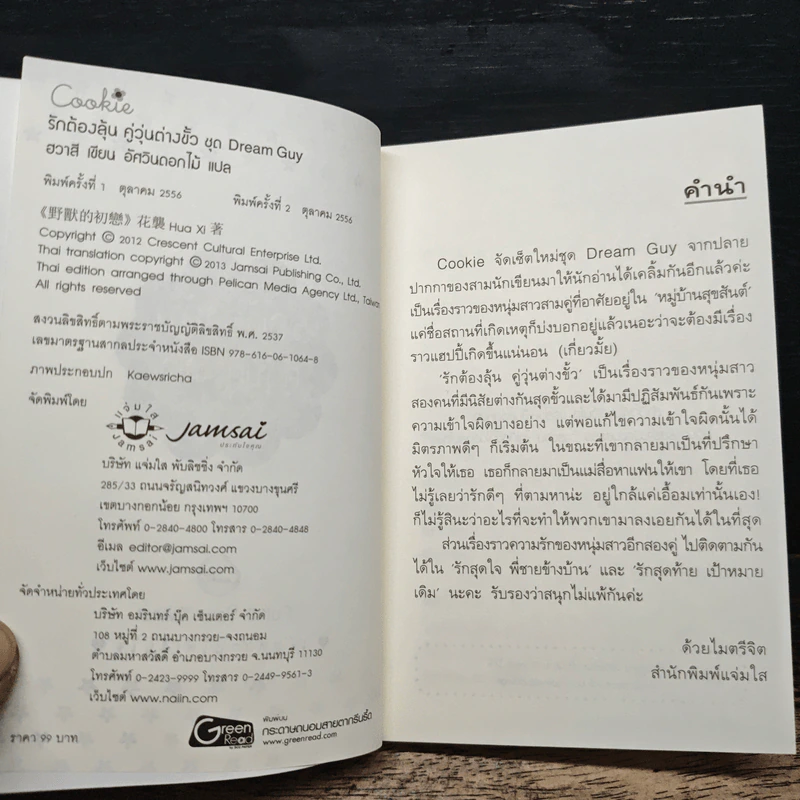 Cookie
รักต้องลุ้น คู่วุ่นต่างขั้ว ชุด Dream Guy
ฮวาสี เขียน อัศวินดอกไม้ แปล
พิมพ์ครั้งที่ 1 ตุลาคม 2556
พิมพ์ครั้งที่ 2 ตุลาคม 2556
《野獸的初戀》花襲 Hua Xi 著
Copyright © 2012 Crescent Cultural Enterprise Ltd.
Thai translation copyright © 2013 Jamsai Publishing Co., Ltd.
Thai edition arranged through Pelican Media Agency Ltd., Taiwan
All rights reserved
สงวนลิขสิทธิ์ตามพระราชบัญญัติลิขสิทธิ์ พ.ศ. 2537
เลขมาตรฐานสากลประจำหนังสือ ISBN 978-616-06-1064-8
ภาพประกอบปก Kaewsricha
จัดพิมพ์โดย
แจ่มใส
Jamsai
Jamsai
ประดับใจคุณ
บริษัท แจ่มใส พับลิชชิ่ง จำกัด
285/33 ถนนจรัญสนิทวงศ์ แขวงบางขุนศรี
เขตบางกอกน้อย กรุงเทพฯ 10700
โทรศัพท์ 0-2840-4800 โทรสาร 0-2840-4848
อีเมล editor@jamsai.com
เว็บไซต์ www.jamsai.com
จัดจำหน่ายทั่วประเทศโดย
บริษัท อมรินทร์ บุ๊ค เซ็นเตอร์ จำกัด
108 หมู่ที่ 2 ถนนบางกรวย-จงถนอม
ตำบลมหาสวัสดิ์ อำเภอบางกรวย จ.นนทบุรี 11130
โทรศัพท์ 0-2423-9999 โทรสาร 0-2449-9561-3
เว็บไซต์ www.naiin.com
ราคา 99 บาท
Green Read
พิมพ์บน
กระดาษถนอมสายตากรีนรี้ด
www.greenread.com
คำนำ
Cookie จัดเซ็ตใหม่ชุด Dream Guy จากปลาย
ปากกาของสามนักเขียนมาให้นักอ่านได้เคลิ้มกันอีกแล้วค่ะ
เป็นเรื่องราวของหนุ่มสาวสามคู่ที่อาศัยอยู่ใน 'หมู่บ้านสุขสันต์'
แค่ชื่อสถานที่เกิดเหตุก็บ่งบอกอยู่แล้วเนอะว่าจะต้องมีเรื่อง
ราวแฮปปี้เกิดขึ้นแน่นอน (เกี่ยวมั้ย)
'รักต้องลุ้น คู่วุ่นต่างขั้ว' เป็นเรื่องราวของหนุ่มสาว
สองคนที่มีนิสัยต่างกันสุดขั้วและได้มามีปฏิสัมพันธ์กันเพราะ
ความเข้าใจผิดบางอย่าง แต่พอแก้ไขความเข้าใจผิดนั้นได้
มิตรภาพดีๆ ก็เริ่มต้น ในขณะที่เขากลายมาเป็นที่ปรึกษา
หัวใจให้เธอ เธอก็กลายมาเป็นแม่สื่อหาแฟนให้เขา โดยที่เธอ
ไม่รู้เลยว่ารักดีๆ ที่ตามหาน่ะ อยู่ใกล้แค่เอื้อมเท่านั้นเอง!
ก็ไม่รู้สินะว่าอะไรที่จะทำให้พวกเขามาลงเอยกันได้ในที่สุด
ส่วนเรื่องราวความรักของหนุ่มสาวอีกสองคู่ ไปติดตามกัน
ได้ใน 'รักสุดใจ พี่ชายข้างบ้าน' และ 'รักสุดท้าย เป้าหมาย
เดิม' นะคะ รับรองว่าสนุกไม่แพ้กันค่ะ
ด้วยไมตรีจิต
สำนักพิมพ์แจ่มใส